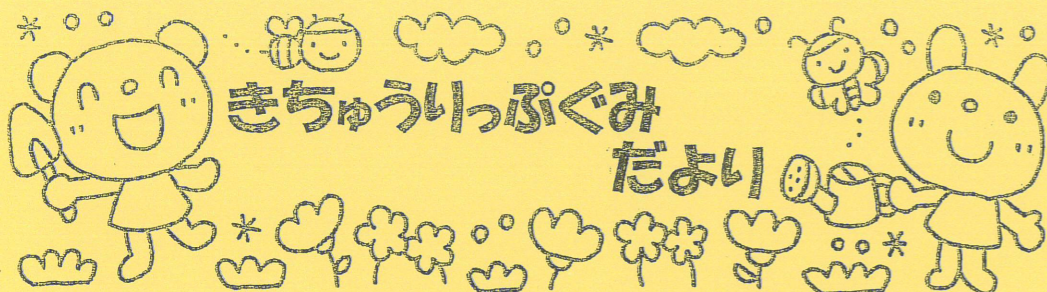 きちゅうりっぷぐみ
だより